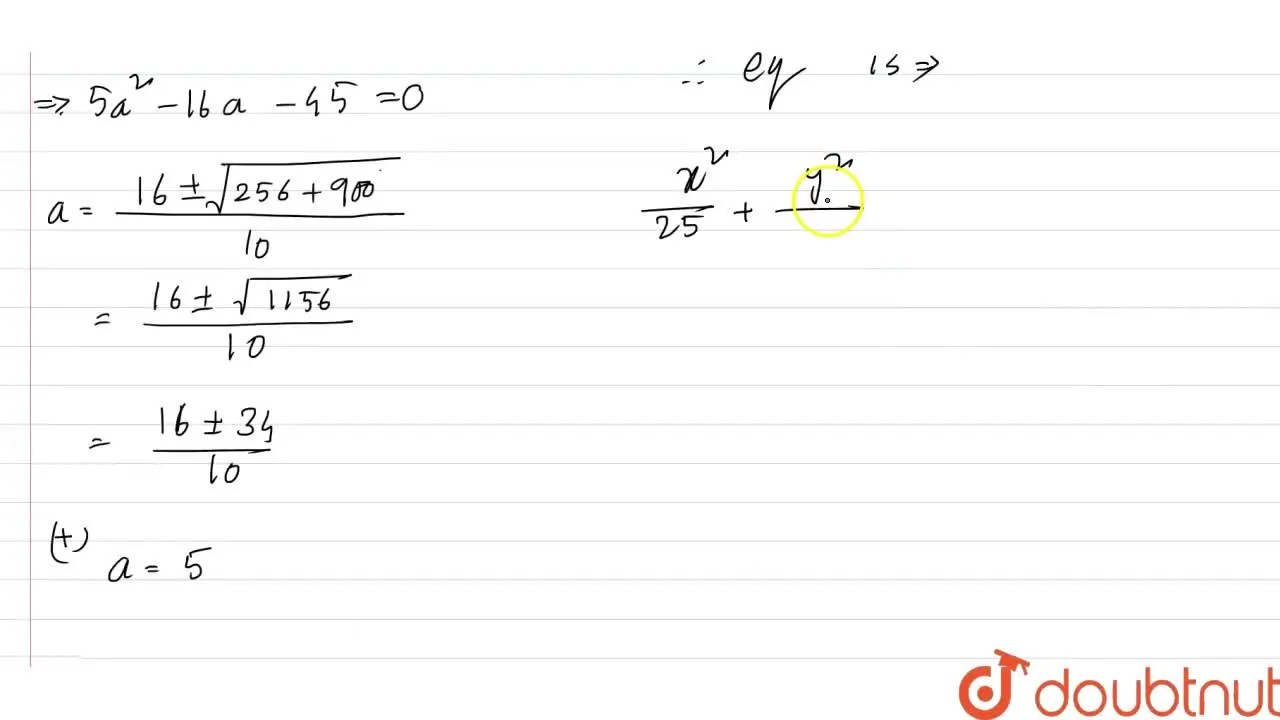 ⇒ 5a² - 16a - 45 = 0
a = (16 ± √(256 + 900)) / 10
= (16 ± √1156) / 10
= (16 ± 34) / 10
(+)
a = 5
∴ eq is ⇒
x²/25 + y²/
doubtnut